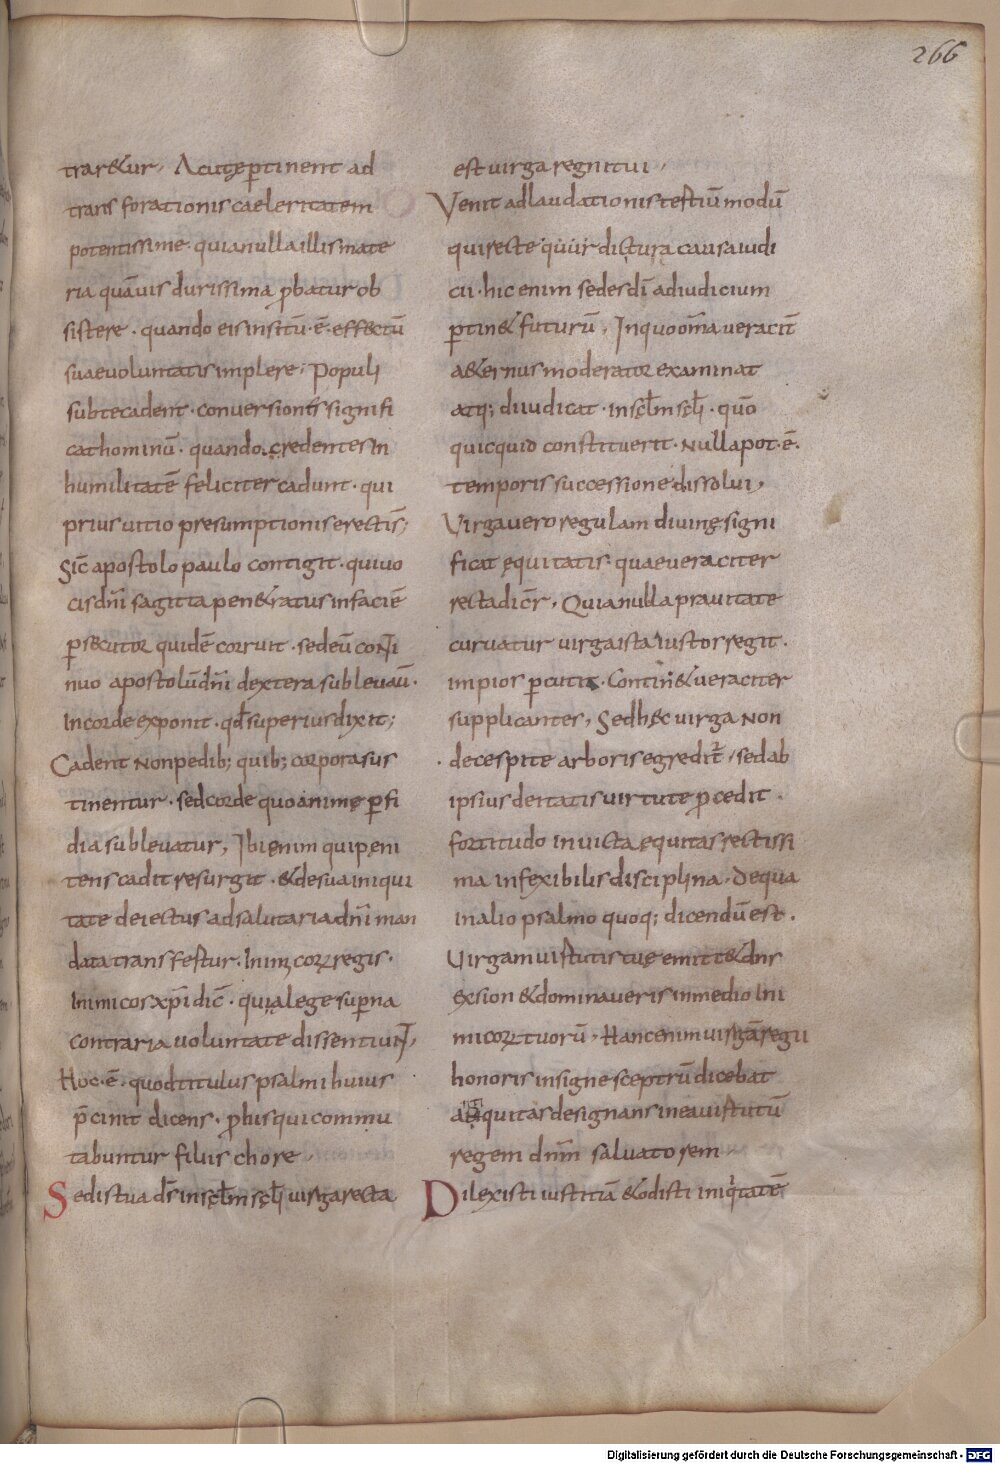 266
trar&ur, Acutę ptinent ad
transforationis caeleritatem
potentissime quia nulla illis mate
ria quāuis durissima pbatur ob
sistere . quando eis insitū . ē . effectū
suae voluntatis implere; Populi
sub te cadent . conversionēs signifi
cat hominū . quando credentes in
humilitatē feliciter cadunt . qui
prius vitio presumptionis erectis;
Sic̄ apostolo paulo contigit . qui vo
cis dn̄i sagitta pen&ratus in faciē
psecutor quidē corruit . sed eū con̄ti
nuo apostolū dn̄i dextera sublevaū .
In corde exponit . qđ superius dixit;
Cadent non pedib; quib; corpora sus
tinentur . sed corde quo animę pfi
dia sublevatur, Ibi enim qui pęni
tens cadit resurgit . & de sua iniqui
tate deiectus ad salutaria dn̄i man
data transfertur. Inim corꝝ regis .
Inimicos xp̄i dic̄ . qui a lege supna
contraria voluntate dissentiuīt,
Hoc . ē . quod titulus psalmi huius
p̄cinit dicens . p his qui commu
tabuntur filiis chore .
Sedis tua ds̄ in sc̄lm sc̄li virga recta
est virga regni tui .
Venit ad laudationis tertiū modū
qui recte dictura causa iudi
cii . hic enim sedes dī ad iudicium
ptin& futurū . In quo om̄a veracit̄
a&ernus moderator examinat
atq; diiudicat . in sc̄lm sc̄li . quō
quicquid constituerit . nulla pot . ē .
temporis successione dissolvi,
Virga vero regulam divinę signi
ficat ęquitatis . quae veraciter
recta dic̄r . Quia nulla pravitate
curvatur virga ista iustos regit .
impios pcutit . Contin& veraciter
supplicantes, Sed hęc virga non
de cespite arboris egredit̄ . sed ab
ipsius deitatis virtute pcedit .
fortitudo invicta ęquitas rectissi
ma infexibilis disciplina . De qua
in alio psalmo quoq; dicendū est .
Virgam virtutis tuę emitt& dns
ex sion & dominaveris in medio ini
micorꝝ tuorū . Hanc enim virgā regii
honoris insigne sceptrū dicebat
ęquitas designans in ea virtutū
regem dnm̄ salvatorem
Dilexisti iustitiā & odisti iniqͥtatē
Digitalisierung gefördert durch die Deutsche Forschungsgemeinschaft - DFG